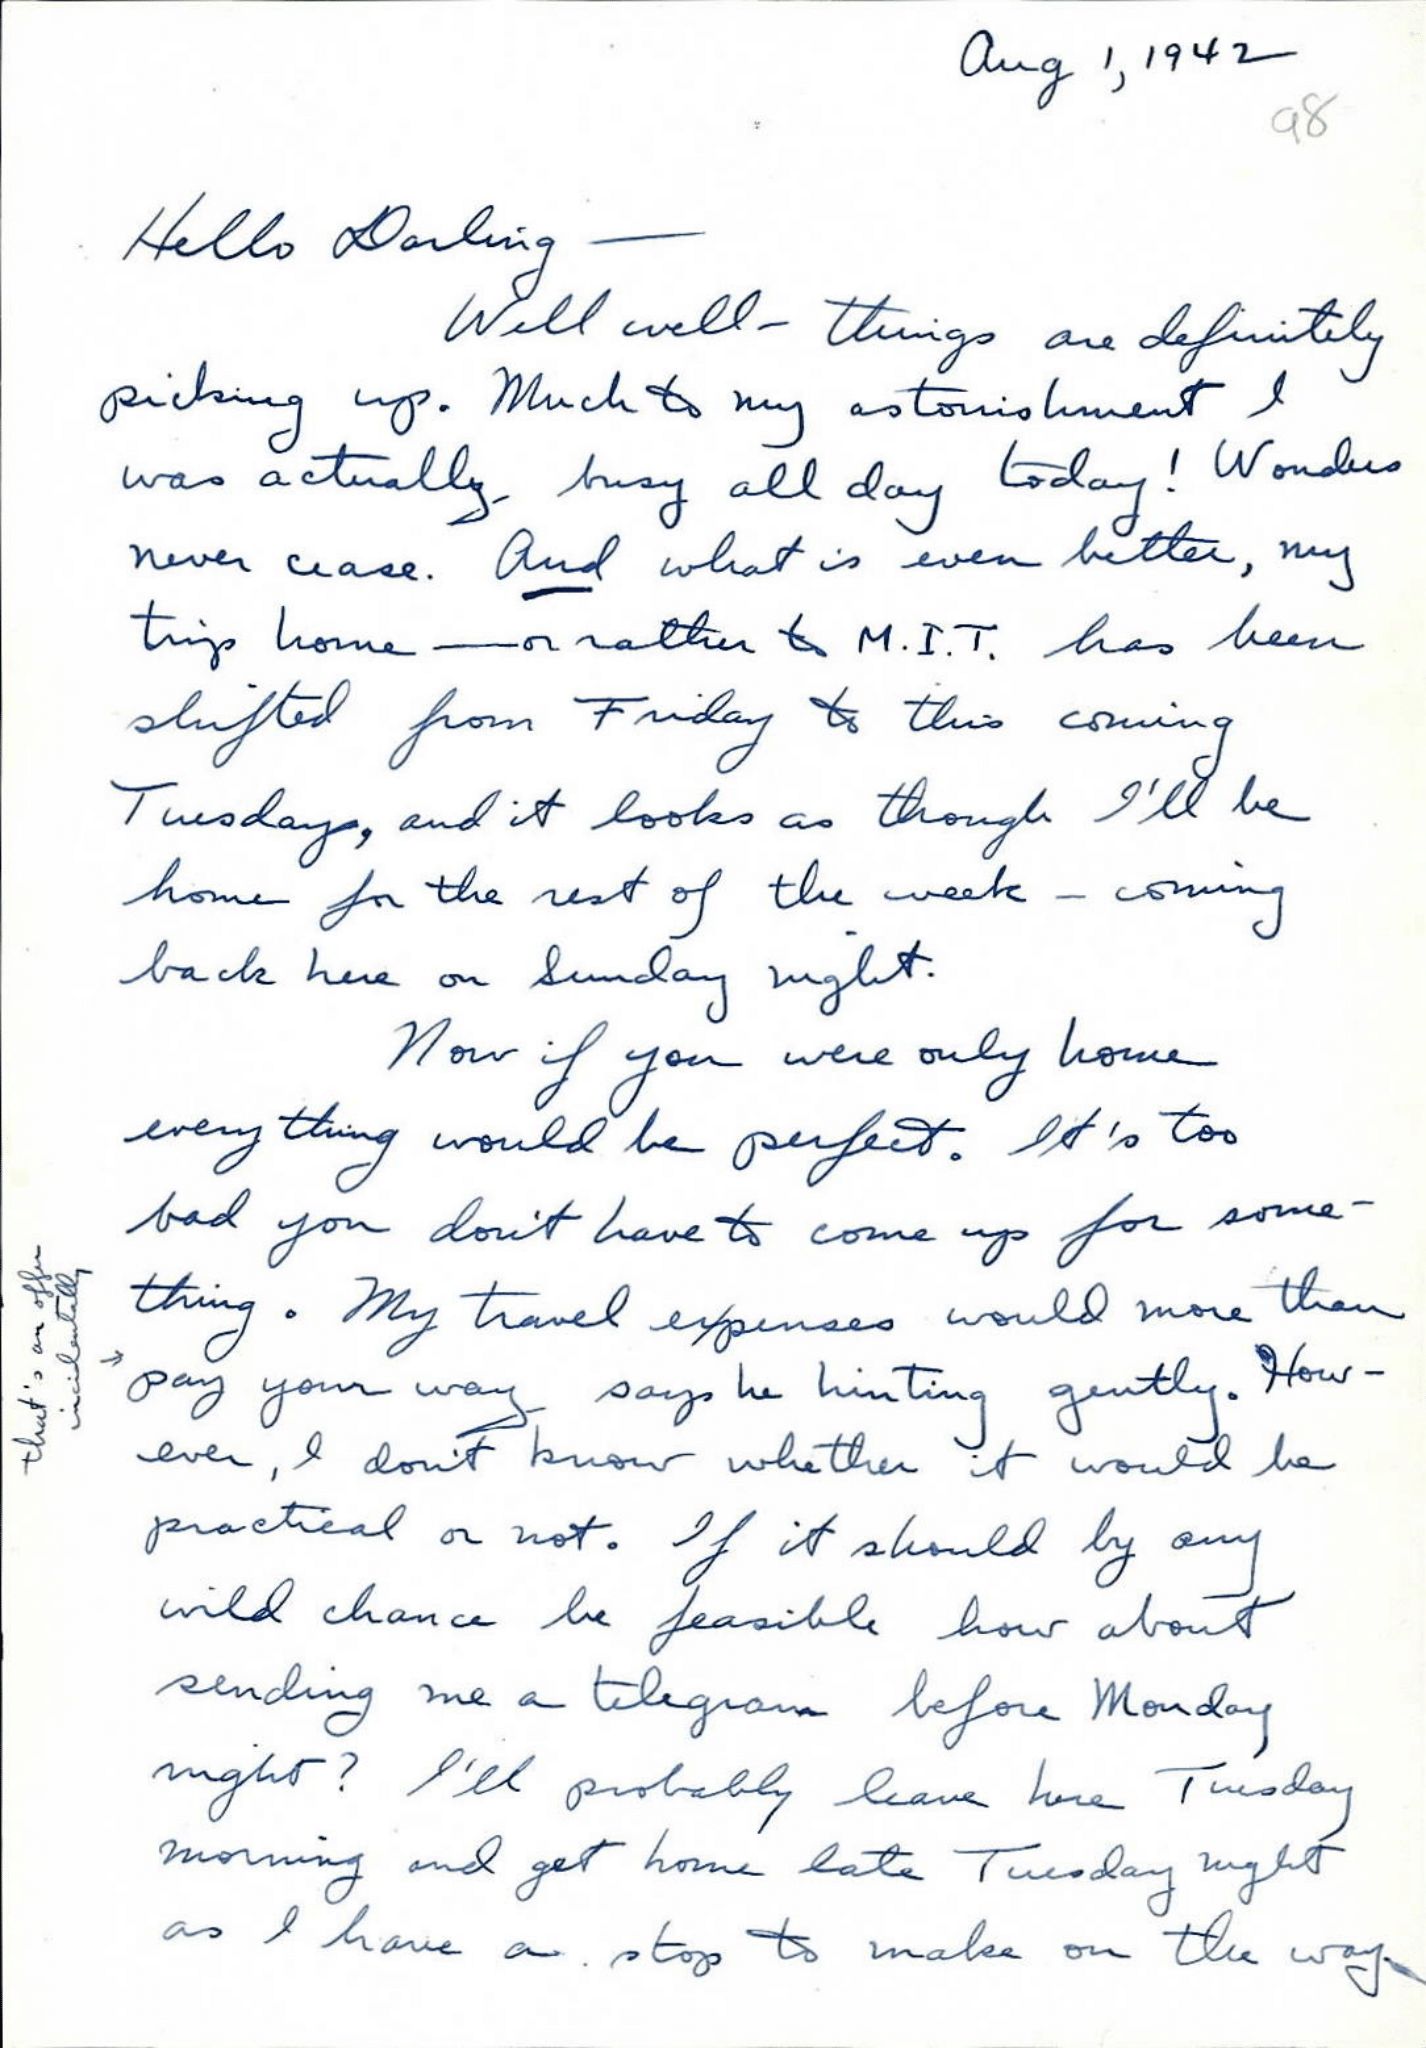 Aug 1, 1942
98
Hello Darling —
Well well – things are definitely
picking up. Much to my astonishment I
was actually busy all day today! Wonders
never cease. And what is even better, my
trip home — or rather to M.I.T. has been
shifted from Friday to this coming
Tuesday, and it looks as though I'll be
home for the rest of the week – coming
back here on Sunday night.
Now if you were only home
everything would be perfect. It's too
bad you don't have to come up for some-
thing. My travel expenses would more than
pay your way says he hinting gently. How-
ever, I don't know whether it would be
practical or not. If it should by any
wild chance be feasible how about
sending me a telegram before Monday
night? I'll probably leave here Tuesday
morning and get home late Tuesday night
as I have a stop to make on the way.
that's an offer
incidentally →